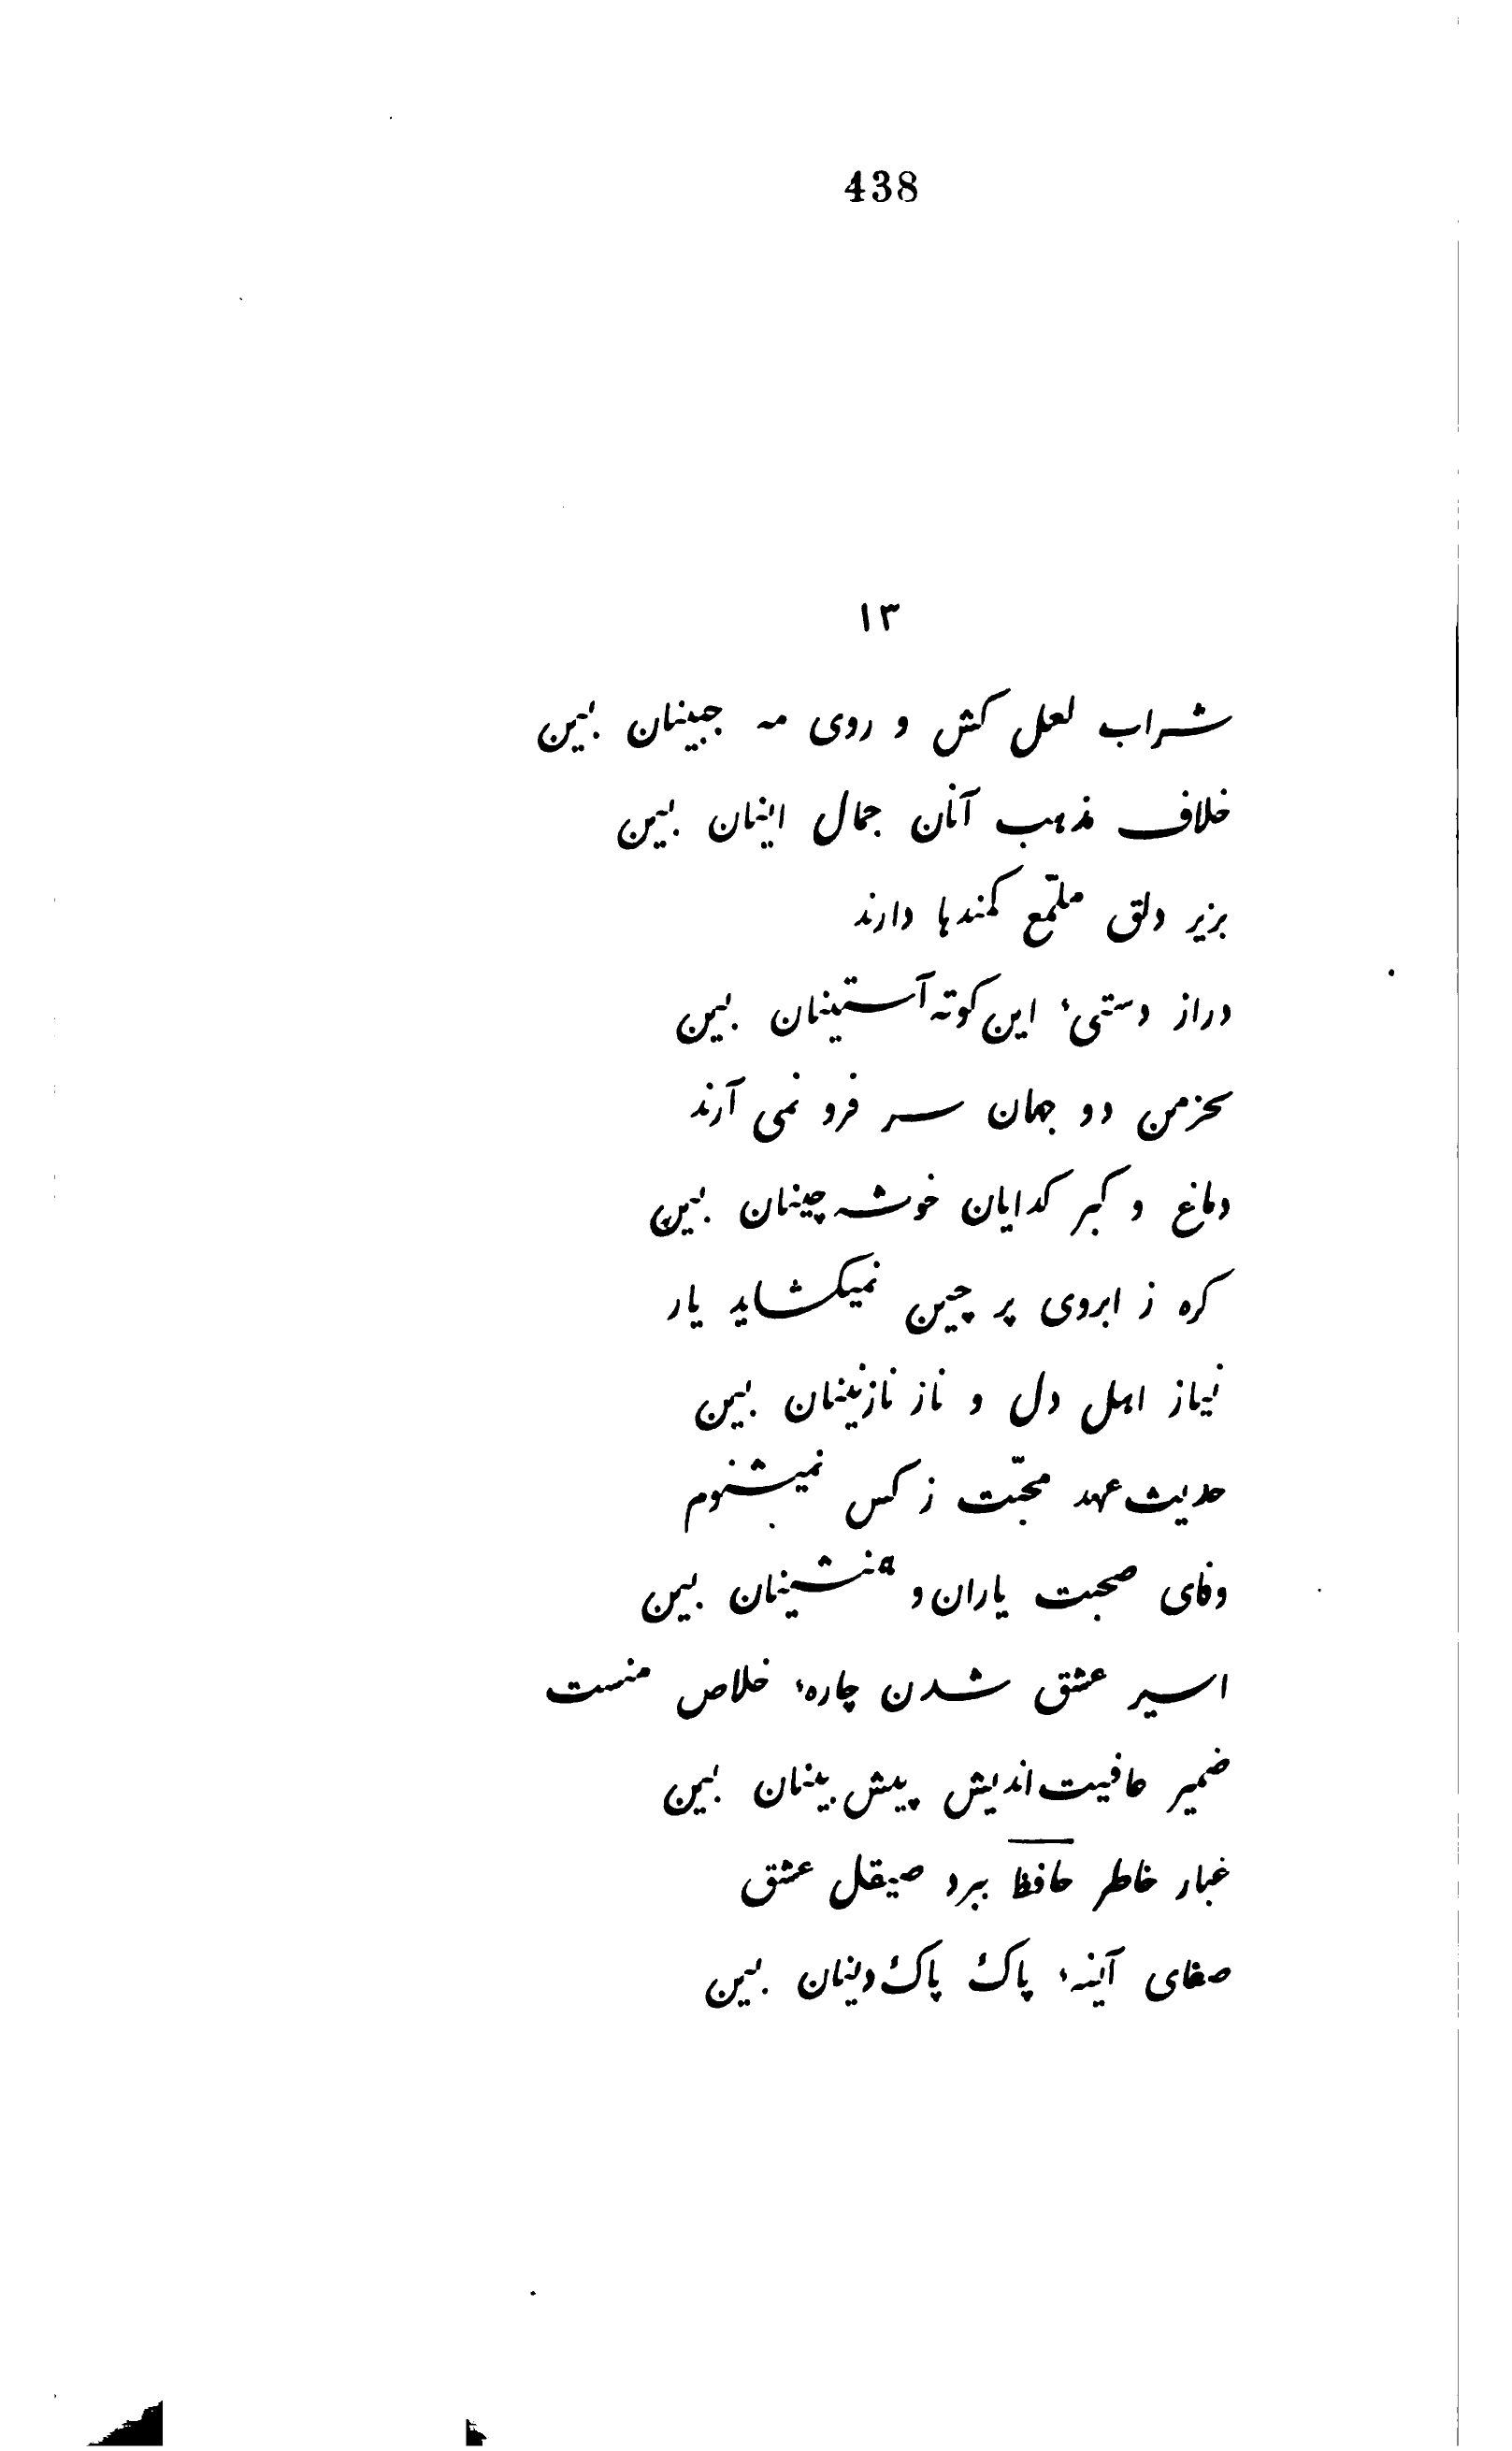 438
١٣
شراب لعل کش و روی مه جبینان بین
خلاف مذهب آنان جمال اینان بین
بزیر دلق ملمّع کمندها دارند
دراز دستیٔ این کوته آستینان بین
بخرمن دو جهان سر فرو نمی آرند
دماغ و کبر کدایان خوشه چینان بین
کره ز ابروی پر چین نمیکشاید یار
نیاز اهل دل و ناز نازنینان بین
حدیث عهد محبّت ز کس نمیشنوم
وفای صحبت یاران و همنشینان بین
اسیر عشق شدن چارهٔ خلاص منست
ضمیر عافیت اندیش پیش بینان بین
غبار خاطر حافظ ببرد صیقل عشق
صفای آینهٔ پاک پاک دینان بین